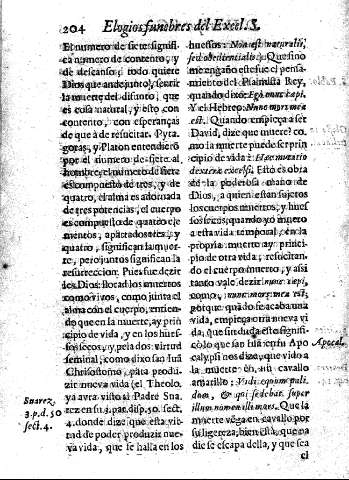 204 Elogios funebres del Excel. S.
El numero de siete signifi-
ca numero de contento, y
de descanso; todo quiere
Dios que ande junto, sentir
la muerte del difunto, que
es cosa natural, y esto con
contento, con esperanças
de que à de resucitar. Pyta-
goras, y Platon entendierõ
por el numero de siete al
hombre, el numero de siete
es compuesto de tres, y de
quatro, el alma es adornada
de tres potencias, el cuerpo
es compuesto de quatro ele
mentos, apartados tres, y
quatro, significan la muer-
te, pero juntos significan la
resurreccion: Pues fue dezir
les Dios: llorad los muertos
como vivos, como junta el
alma con el cuerpo, enten-
do que en la muerte, ay prin
cipio de vida, y en los hues-
sos secos, y pelados virtud
seminal, como dixo san Iuã
Chrisostomo, para produ-
zir nueva vida (el Theolo.
ya avra visto al Padre Sua-
rez en su 3. par. disp. 50. sect.
4. donde dize que esta vir-
tud de poder produzir nue-
va vida, que se halla en los
Suarez,
3. p. d. 50
sect. 4.
huessos: Non est naturalis,
sed obedientialis): Que sino
me engaño este fue el pensa-
miento del Psalmista Rey,
quando dixo: Ego nunc cepi.
Y el Hebreo: Nunc mors mea
est. Quando empieça a ser
David, dize que muere? co-
mo la muerte puede ser prin
cipio de vida? Hæc mutatio
dexteræ excelsi. Esto es obra
de la poderosa mano de
Dios, a quien estan sujetos
los cuerpos muertos, y hues
sos secos, quando yo muero
a esta vida temporal, en la
propria muerte ay princi-
pio de otra vida, resucitan-
do el cuerpo muerto, y assi
tanto vale dezir: nunc cepi,
como, nunc mors mea est,
porque quãdo se acaba una
vida, empieça otra nueva vi
da, que sin duda esto signifi-
cò lo que san Iuã en su Apo
calypsi nos dize, que vido a
la muerte en un cavallo
amarillo: Vidi equum pali-
dum, & qui sedebat super
illum nomen illi mors. Que la
muerte vẽga en cavallo por
su ligereza, bien està, que na
die se escapa della, y que sea
el
Apocal.